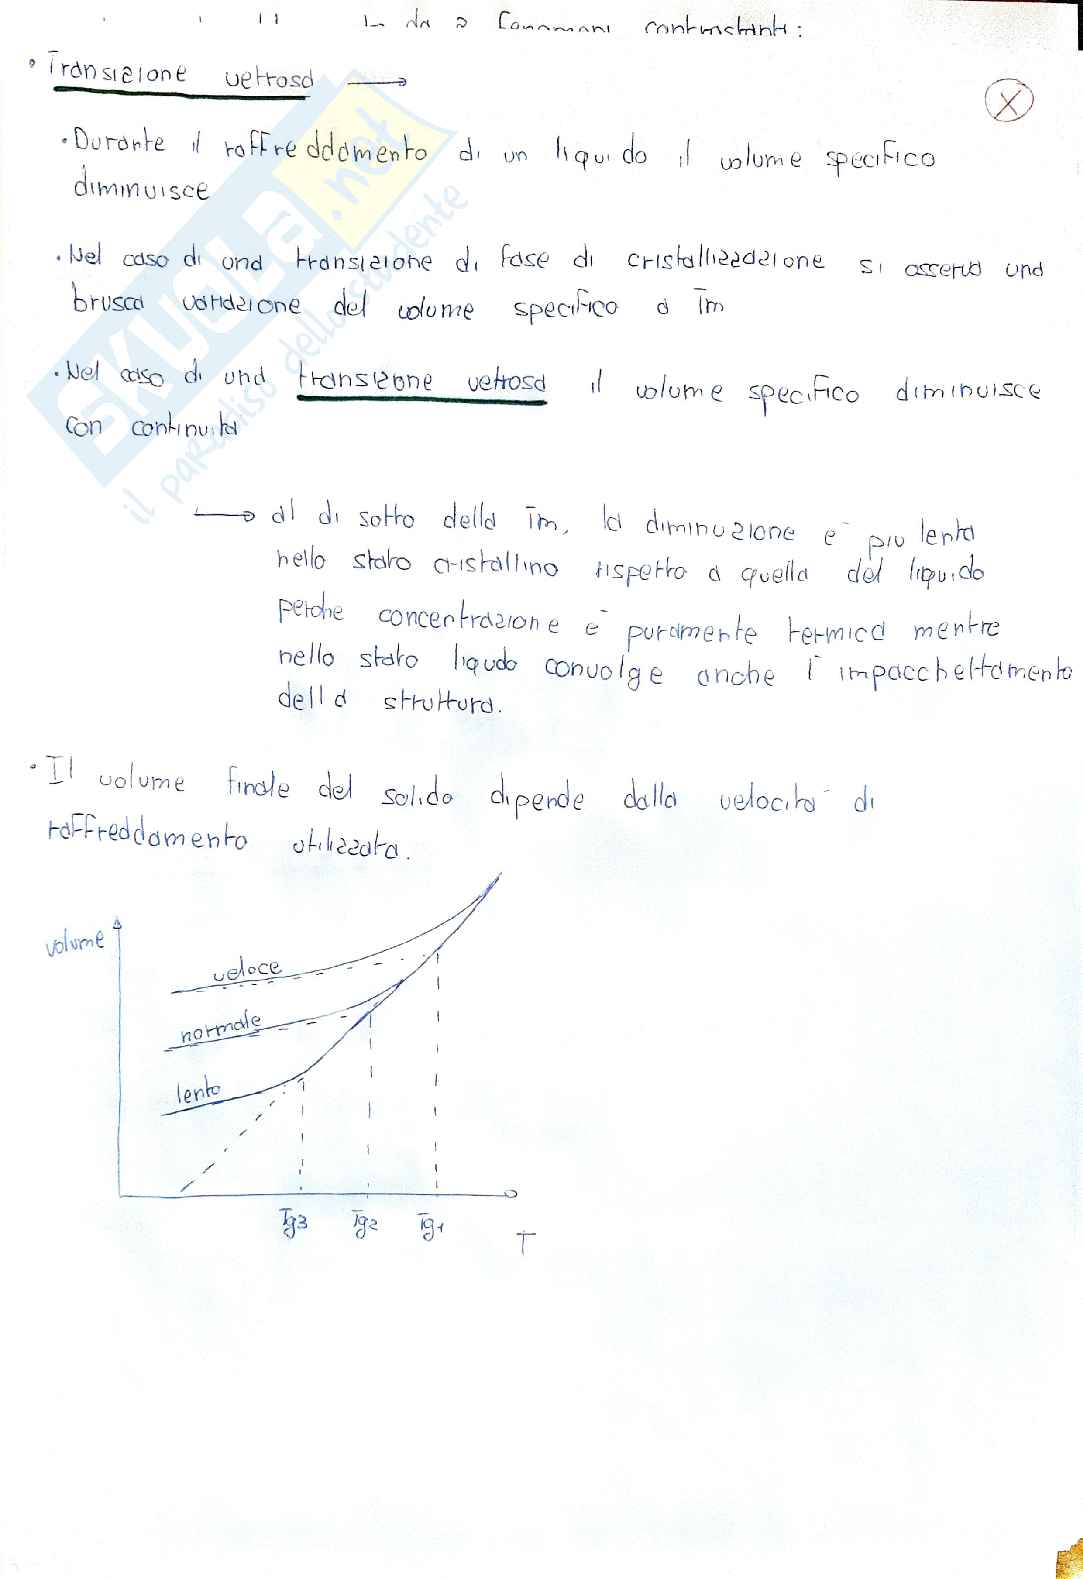 da 2 fenomeni contrastanti:
• Transizione vetrosa →
X
• Durante il raffreddamento di un liquido il volume specifico
diminuisce
• Nel caso di una transizione di fase di cristallizzazione si osserva una
brusca variazione del volume specifico a Tm
• Nel caso di una transizone vetrosa il volume specifico diminuisce
con continuità
→ al di sotto della Tm, la diminuzione è più lenta
nello stato cristallino rispetto a quella del liquido
perche concentrazione è puramente termica mentre
nello stato liqudo convolge anche l'impacchettamento
della struttura.
• Il volume finale del solido dipende dalla velocità di
raffreddamento utilizzata.
volume
veloce
normale
lento
Tg3 Tg2 Tg1
T
SKUOLA.net
il paradiso dello studente